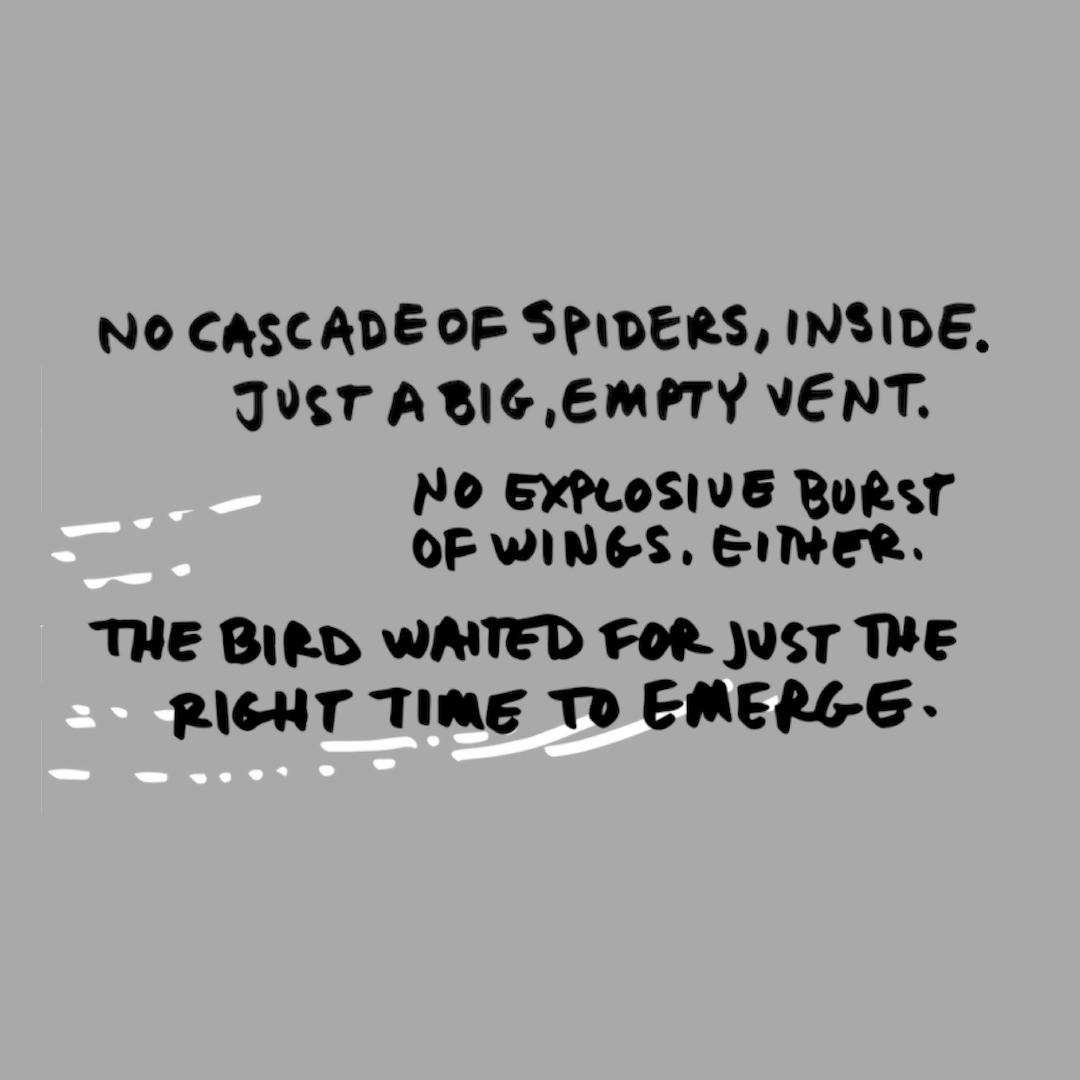 NO CASCADE OF SPIDERS, INSIDE.
JUST A BIG, EMPTY VENT.
NO EXPLOSIVE BURST
OF WINGS. EITHER.
THE BIRD WAITED FOR JUST THE
RIGHT TIME TO EMERGE.